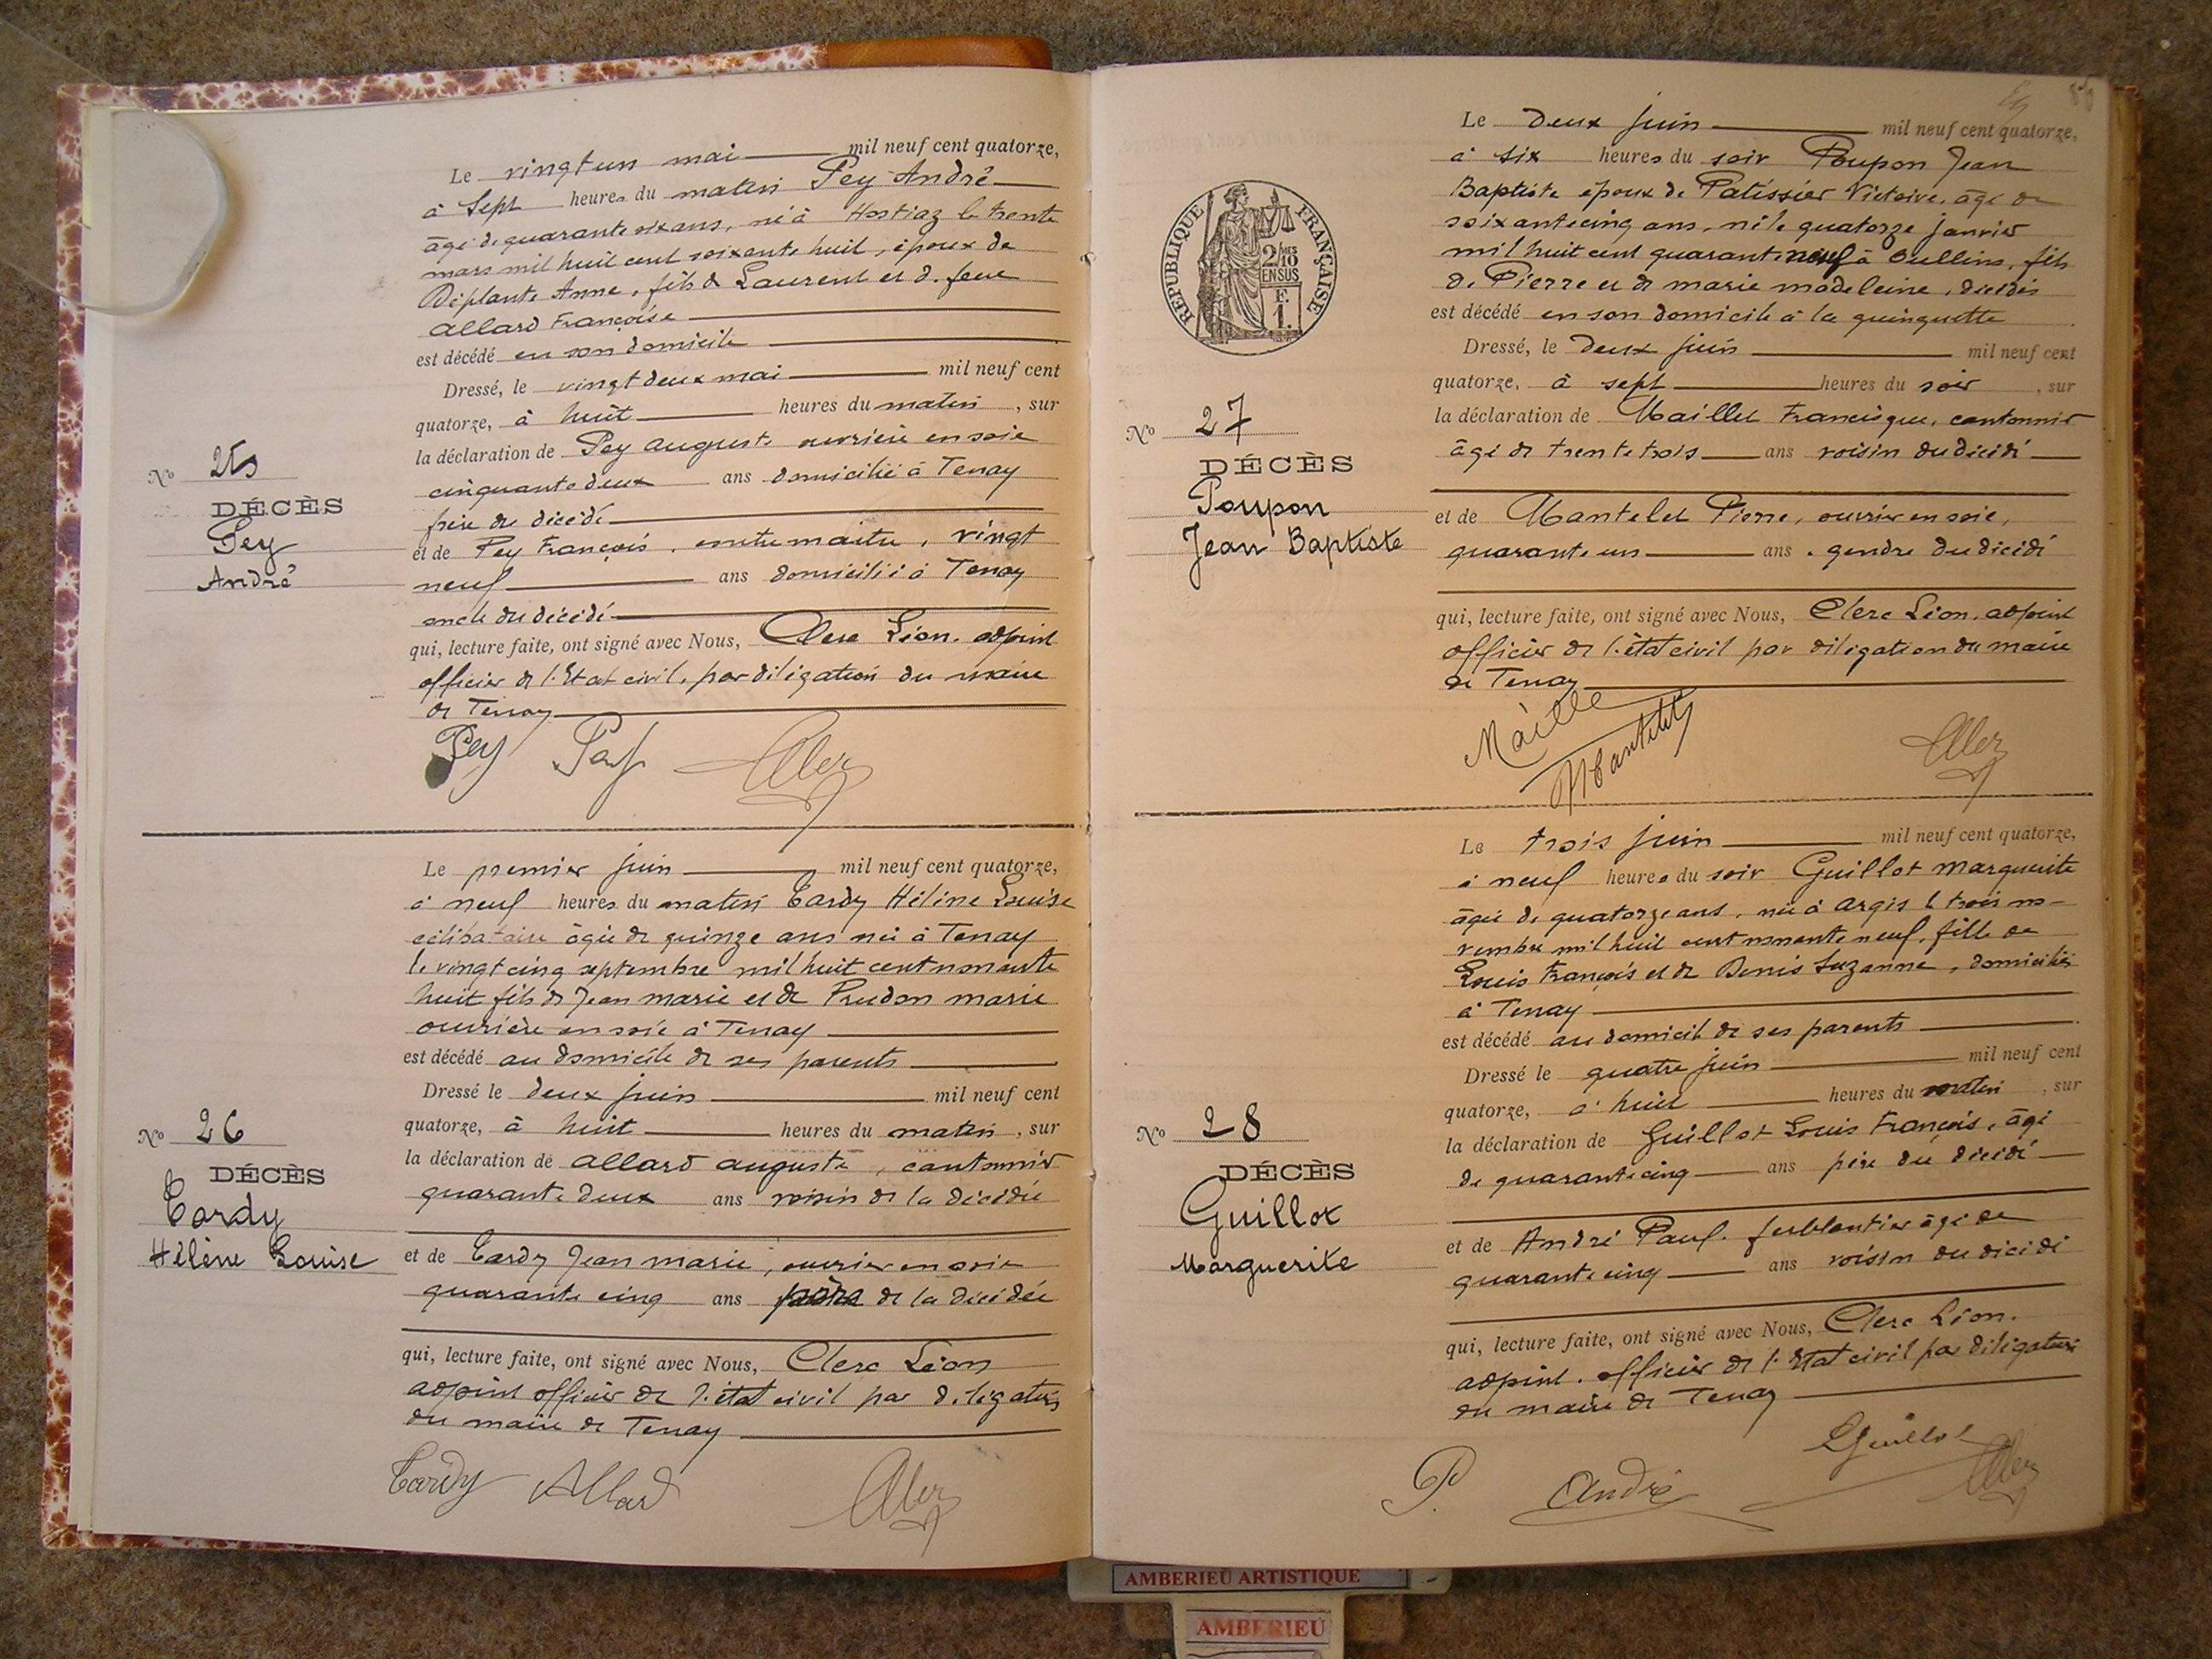 Le vingt un mai mil neuf cent quatorze,
à Sept heures du matin Pey André
âgé de quarante six ans, né à Hostiaz le trente
mars mil huit cent soixante huit, époux de
Déplante Anne, fils de Laurent et d. feue
Allard Françoise
est décédé en son domicile
Dressé, le vingt deux mai mil neuf cent
quatorze, à huit heures du matin, sur
la déclaration de Pey Auguste ouvrier en soie
cinquante deux ans domicilié à Tenay
frère du décédé
et de Pey François, contremaitre, vingt
neuf ans domicilié à Tenay
oncle du décédé
qui, lecture faite, ont signé avec Nous, Clerc Léon, adjoint
officier de l'Etat civil, par délégation du maire
de Tenay
Pey Pey Clerc
No 25
DÉCÈS
Pey
André
Le premier juin mil neuf cent quatorze,
à neuf heures du matin Tardy Hélène Louise
célibataire âgée de quinze ans née à Tenay
le vingt cinq septembre mil huit cent nonante
huit fils de Jean marie et de Prudon marie
ouvrière en soie à Tenay
est décédé au domicile de ses parents
Dressé le deux juin mil neuf cent
quatorze, à huit heures du matin, sur
la déclaration de Allard Auguste, cantonnier
quarante deux ans voisin de la décédée
et de Tardy Jean marie, ouvrier en soie
quarante cinq ans père de la décédée
qui, lecture faite, ont signé avec Nous, Clerc Léon
adjoint officier de l'état civil par délégation
du maire de Tenay
Tardy Allard Clerc
No 26
DÉCÈS
Tardy
Hélène Louise
Le deux juin mil neuf cent quatorze,
à six heures du soir Poupon Jean
Baptiste époux de Patissier Victoire, âgé de
soixante cinq ans, né le quatorze janvier
mil huit cent quarante neuf à Oullins, fils
de Pierre et de marie madeleine, décédés
est décédé en son domicile à la guinguette
Dressé, le deux juin mil neuf cent
quatorze, à sept heures du soir, sur
la déclaration de Maillet Francisque, cantonnier
âgé de trente trois ans voisin du décédé
et de Mantelet Pierre, ouvrier en soie,
quarante un ans, gendre du décédé
qui, lecture faite, ont signé avec Nous, Clerc Léon, adjoint
officier de l'état civil par délégation du maire
de Tenay
Maille
Mantelet
Clerc
RÉPUBLIQUE FRANÇAISE
2/10 MES
EN SUS
E.
1.
No 27
DÉCÈS
Poupon
Jean Baptiste
Le trois juin mil neuf cent quatorze,
à neuf heures du soir Guillot Marguerite
âgée de quatorze ans, née à Argis le trois no-
vembre mil huit cent nonante neuf, fille de
Louis François et de Denis Suzanne, domiciliés
à Tenay
est décédé au domicile de ses parents
Dressé le quatre juin mil neuf cent
quatorze, à huit heures du matin, sur
la déclaration de Guillot Louis François, âgé
de quarante cinq ans père du décédé
et de André Paul, ferblantier âgé de
quarante cinq ans voisin du décédé
qui, lecture faite, ont signé avec Nous, Clerc Léon.
adjoint, officier de l'Etat civil par délégation
du maire de Tenay
P. André LGuillot Clerc
No 28
DÉCÈS
Guillot
Marguerite
AMBERIEU ARTISTIQUE
AMBERIEU